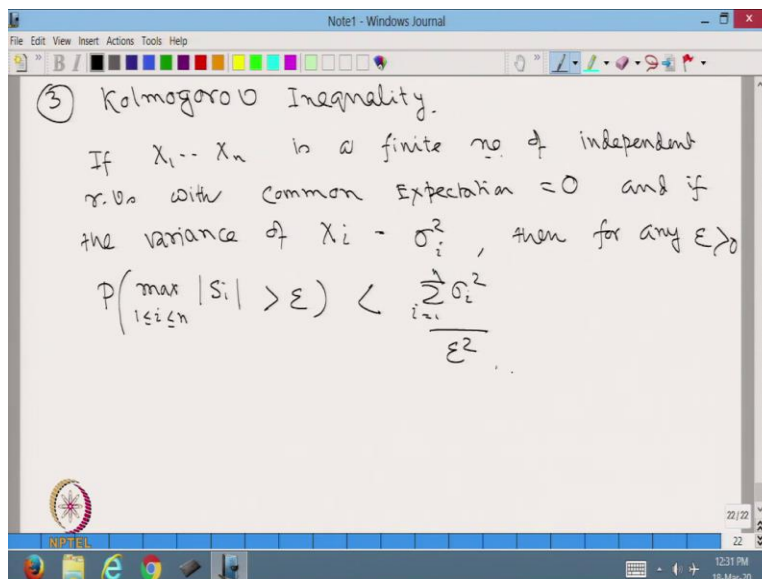 Note1 - Windows Journal
File Edit View Insert Actions Tools Help
B I
③ Kolmogorov Inequality.
If X₁ -- Xₙ is a finite no of independent
r.vs with common Expectation = 0 and if
the variance of Xi - σᵢ², then for any ε>0
P(max |Sᵢ| > ε) < Σσᵢ²
1≤i≤n i=1 n
ε²
22/22
NPTEL
22
12:31 PM
18-Mar-20